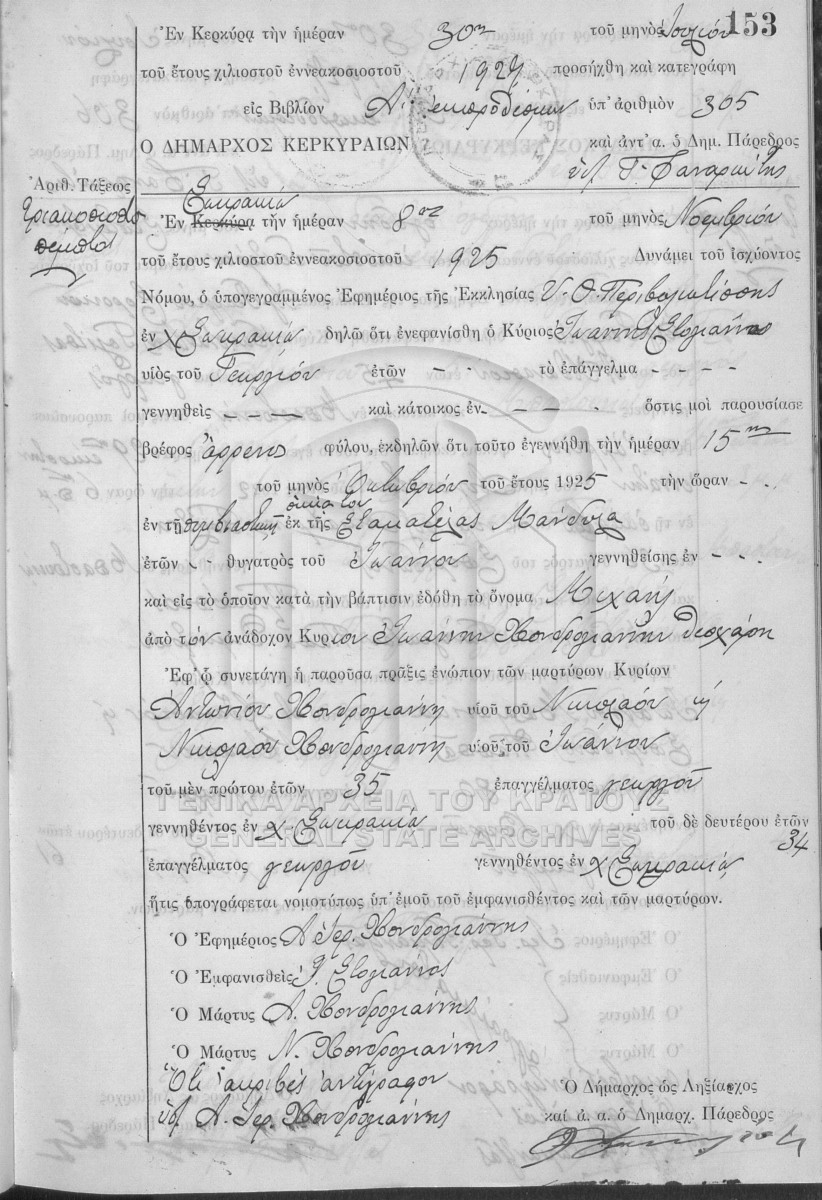 153
Ἐν Κερκύρᾳ τὴν ἡμέραν 30ην τοῦ μηνὸς Ἰουλίου
τοῦ ἔτους χιλιοστοῦ ἐννεακοσιοστοῦ 1927 προσήχθη καὶ κατεγράφη
εἰς Βιβλίον Α. ἐκπροθέσμων ὑπ' ἀριθμὸν 305
Ο ΔΗΜΑΡΧΟΣ ΚΕΡΚΥΡΑΙΩΝ καὶ ἀντ' α. ὁ Δημ. Πάρεδρος
Ἀριθ. Τάξεως
Τριακοσιοστὸς
πέμπτος
Ἐν Κερκύρᾳ τὴν ἡμέραν 8ην τοῦ μηνὸς Νοεμβρίου
τοῦ ἔτους χιλιοστοῦ ἐννεακοσιοστοῦ 1925 Δυνάμει τοῦ ἰσχύοντος
Νόμου, ὁ ὑπογεγραμμένος Ἐφημέριος τῆς Ἐκκλησίας Υ. Θ. Περιβολιωτίσσης
ἐν δηλῶ ὅτι ἐνεφανίσθη ὁ Κύριος Ἰωάννης Στογιάννος
υἱὸς τοῦ Γεωργίου ἐτῶν - - τὸ ἐπάγγελμα - - - -
γεννηθεὶς - - - καὶ κάτοικος ἐν - - - - ὅστις μοὶ παρουσίασε
βρέφος ἄρρενος φύλου, ἐκδηλῶν ὅτι τοῦτο ἐγεννήθη τὴν ἡμέραν 15ην
τοῦ μηνὸς Ὀκτωβρίου τοῦ ἔτους 1925 τὴν ὥραν - -
οἰκίᾳ του
ἐν τῇ ἐκ τῆς Σταματέλας Μάνδυλα
ἐτῶν - - θυγατρὸς τοῦ Ἰωάννου γεννηθείσης ἐν - - -
καὶ εἰς τὸ ὁποῖον κατὰ τὴν βάπτισιν ἐδόθη τὸ ὄνομα Μιχαήλ
ἀπὸ τὸν ἀνάδοχον Κύριον Ἰωάννην Χονδρογιάννην Θεοχάρη
Ἐφ' ᾧ συνετάγη ἡ παροῦσα πρᾶξις ἐνώπιον τῶν μαρτύρων Κυρίων
Ἀντωνίου Χονδρογιάννη υἱοῦ τοῦ Νικολάου
Νικολάου Χονδρογιάννη υἱοῦ τοῦ Ἰωάννου
τοῦ μὲν πρώτου ἐτῶν 35 ἐπαγγέλματος γεωργοῦ
ΓΕΝΙΚΑ ΑΡΧΕΙΑ ΤΟΥ ΚΡΑΤΟΥΣ
γεννηθέντος ἐν τοῦ δὲ δευτέρου ἐτῶν
GENERAL STATE ARCHIVES
34
ἐπαγγέλματος γεωργοῦ γεννηθέντος ἐν
ἥτις ὑπογράφεται νομοτύπως ὑπ' ἐμοῦ τοῦ ἐμφανισθέντος καὶ τῶν μαρτύρων.
Ὁ Ἐφημέριος Α. Ἱερ. Χονδρογιάννης
Ὁ Ἐμφανισθεὶς Ι. Στογιάννος
Ὁ Μάρτυς Α. Χονδρογιάννης
Ὁ Μάρτυς Ν. Χονδρογιάννης
Ὅτι ἀκριβὲς ἀντίγραφον
Α. Ἱερ. Χονδρογιάννης
Ὁ Δήμαρχος ὡς Ληξίαρχος
καὶ ἀ. α. ὁ Δημαρχ. Πάρεδρος